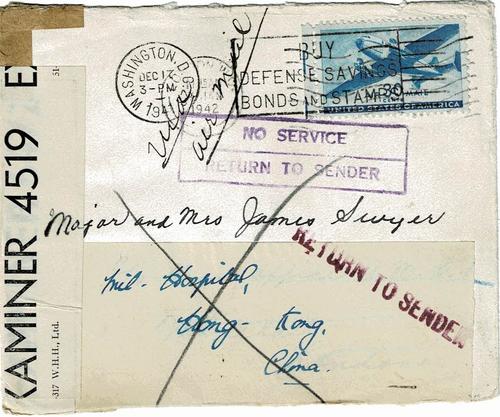 WASHINGTON, D.C.
DEC 17
3-PM
1941
1942
Via
air mail
BUY
DEFENSE SAVINGS
BONDS AND STAMPS
30
UNITED STATES OF AMERICA
NO SERVICE
RETURN TO SENDER
Major and Mrs James Swyer
RETURN TO SENDER
Mil- Hospital,
Hong- Kong,
China.
EXAMINER 4519
317 W.H.H., Ltd.